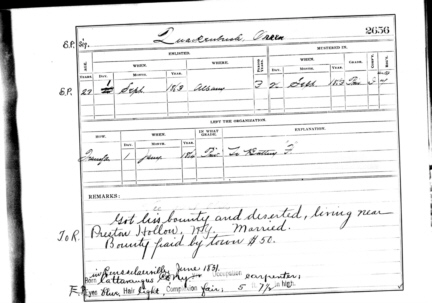 2656
E.P. Sgt. Quackenbush Orren
ENLISTED. MUSTERED IN.
AGE. WHEN. WHERE. WHEN. GRADE. COMP'Y. REG'T.
YEARS DAY. MONTH. YEAR. DAY. MONTH. YEAR.
E.P. 27 Sept. 1863 Albany 3 22 Sept. 1863
LEFT THE ORGANIZATION.
HOW. WHEN. IN WHAT GRADE. EXPLANATION.
DAY. MONTH. YEAR.
Transfer 1 Pri To Battery F
REMARKS:
Got his bounty and deserted, living near
T.O.R. Preston Hollow, N.Y. Married.
Bounty paid by town $50.
in Rensselaerville June 1831.
Born Cattaraugus Co. N.Y. Occupation carpenter;
Eyes blue, Hair light, Complexion fair; 5 ft. 7½ in high.